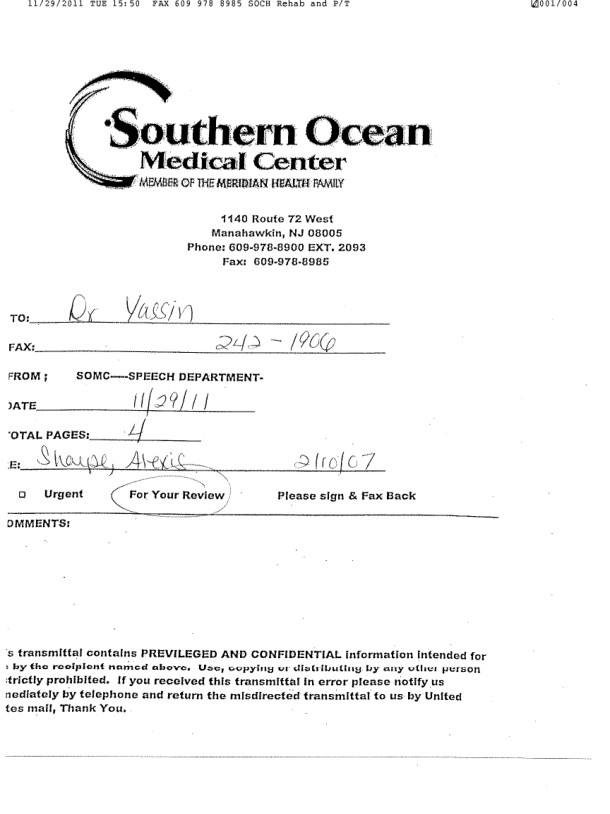 11/29/2011 TUE 15:50 FAX 609 978 8985 SOCH Rehab and P/T 001/004
Southern Ocean
Medical Center
MEMBER OF THE MERIDIAN HEALTH FAMILY
1140 Route 72 West
Manahawkin, NJ 08005
Phone: 609-978-8900 EXT. 2093
Fax: 609-978-8985
TO: Dr Yassin
FAX: 242-1906
FROM; SOMC----SPEECH DEPARTMENT-
DATE 11/29/11
OTAL PAGES: 4
E: Sharpe, Alexis 2/10/07
Urgent For Your Review Please sign & Fax Back
OMMENTS:
s transmittal contains PREVILEGED AND CONFIDENTIAL information intended for
by the recipient named above. Use, copying or distributing by any other person
trictly prohibited. If you received this transmittal in error please notify us
nediately by telephone and return the misdirected transmittal to us by United
tes mail, Thank You.